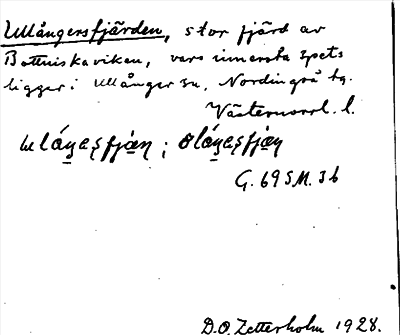 Ullångersfjärden, stor fjärd av
Bottniska viken, vars innersta spets
ligger i Ullånger sn, Nordingrå tg.
Västernorrl. l.
G. 69 SM. 36
D.O. Zetterholm 1928.